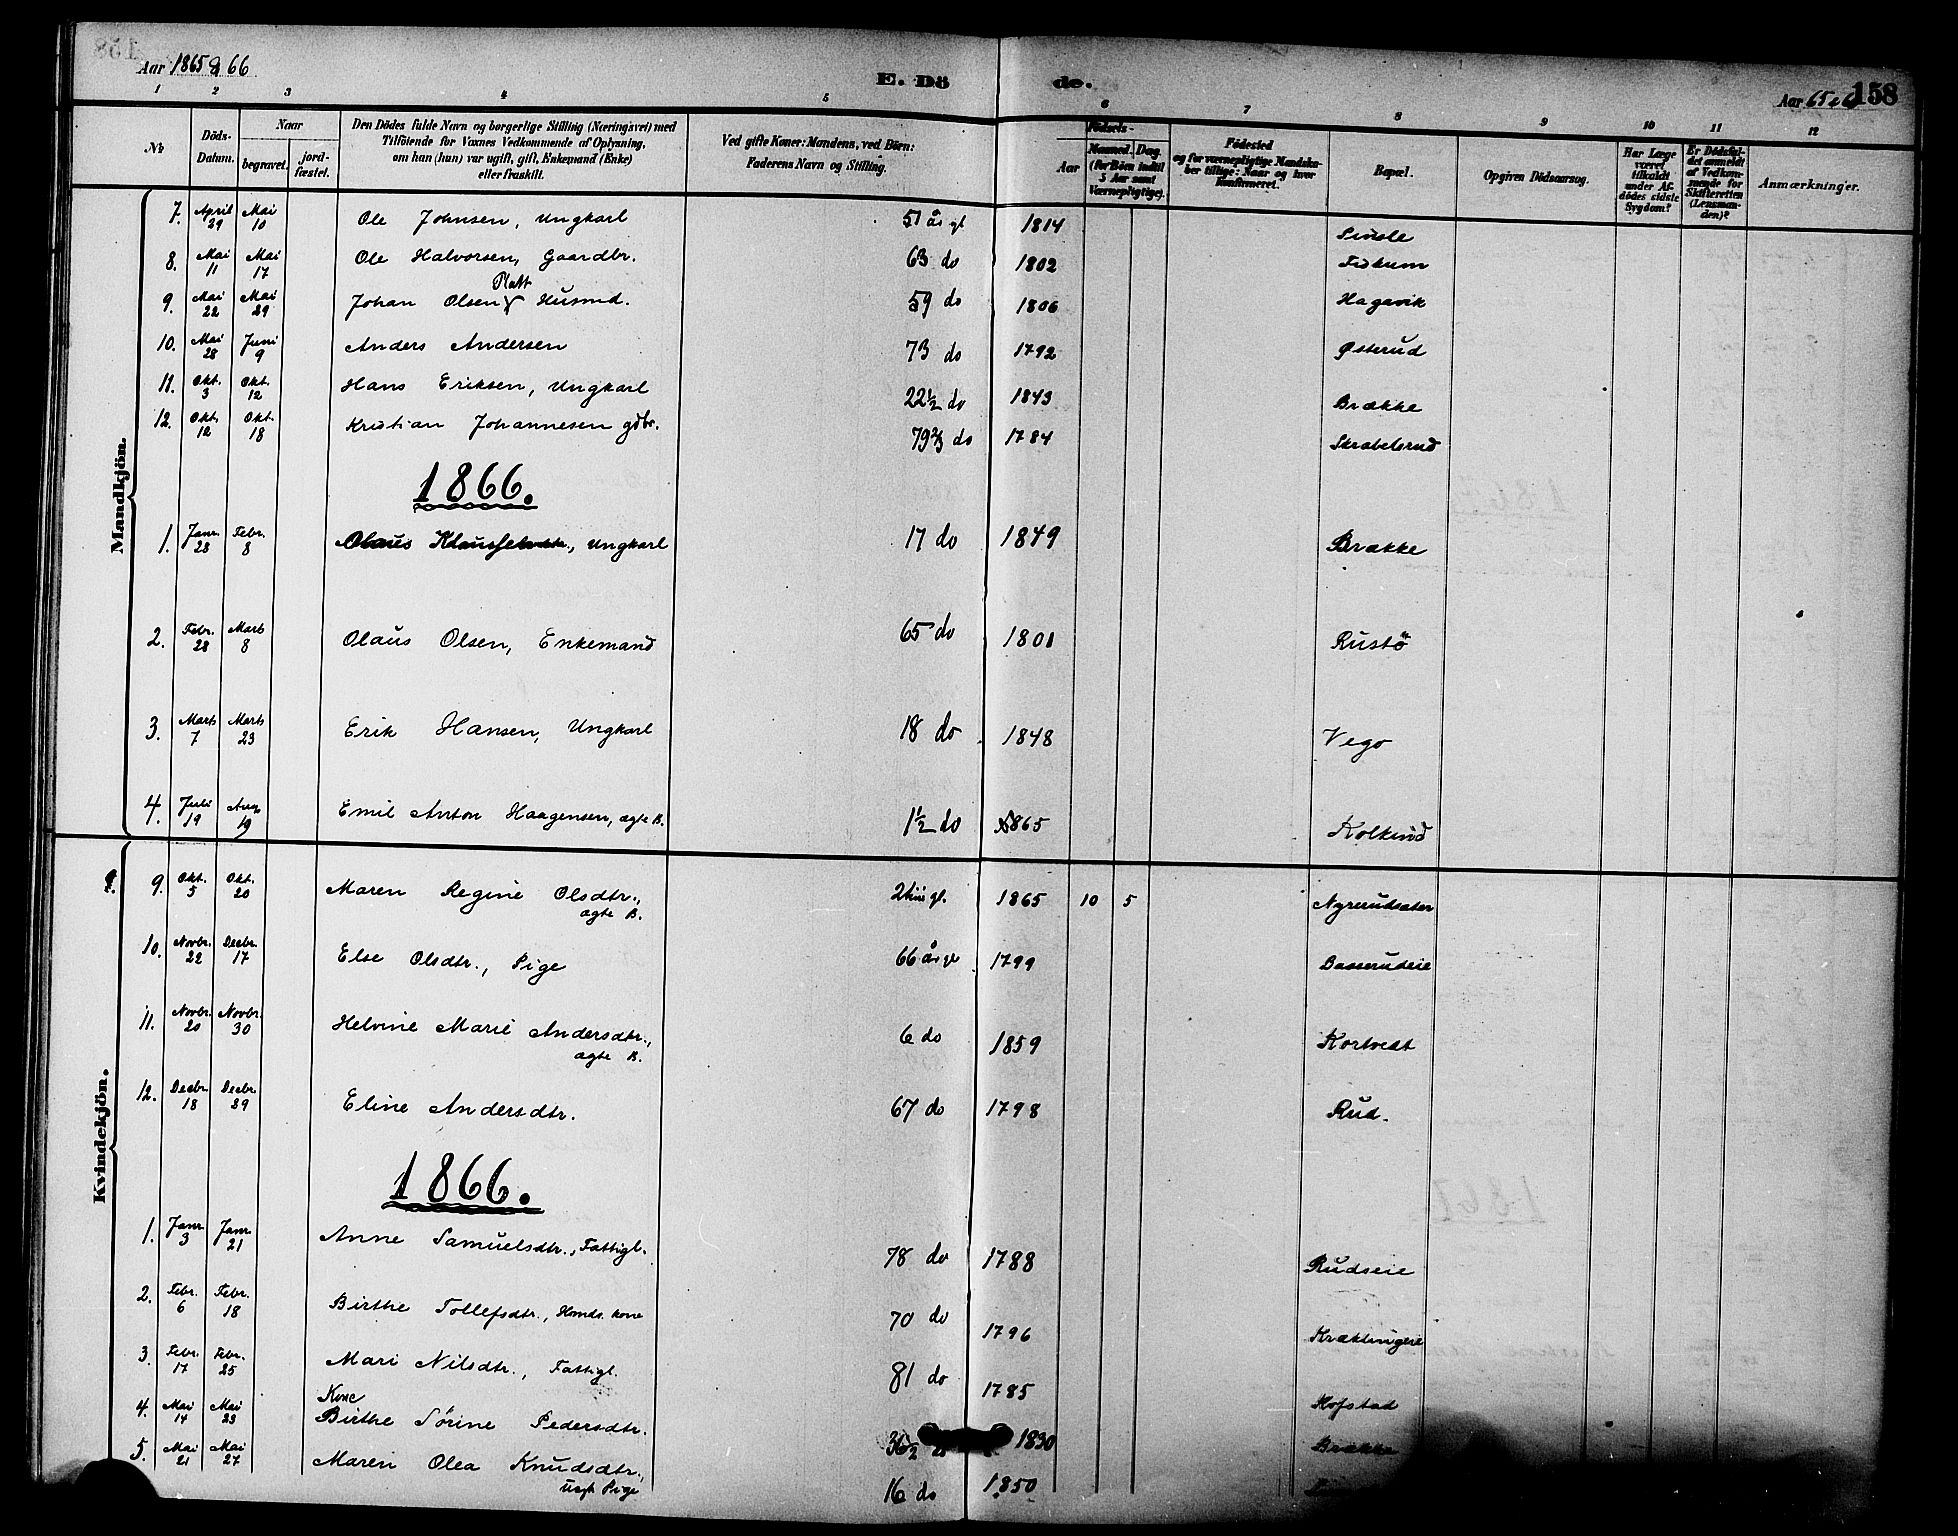 Aar 1865 & 66
E. Dö de.
Aar 65 & 6 158
1 2 3 4 5 6 7 8 9 10 11 12
No
Döds-Datum.
Naar
begravet.
jord-fæstet.
Den Dödes fulde Navn og borgerlige Stilling (Næringsvei) med
Tilföiende for Voxnes Vedkommende af Oplysning,
om han (hun) var ugift, gift, Enkemand (Enke)
eller fraskilt.
Ved gifte Koner: Mandens, ved Börn:
Faderens Navn og Stilling.
Födsels-
Aar
Maaned. Dag.
(for Börn indtil
5 Aar samt
Værnepligtige).
Födested
og for værnepligtige Mandska-
ber tillige: Naar og hvor
konfirmeret.
Bopæl.
Opgiven Dödsaarsag.
Har Læge
været
tilkaldt
under Af-
dödes sidste
Sygdom?
Er Dödsfal-
det anmeldt
af Vedkom-
mende for
Skifteretten
(Lensman-
den)?
Anmærkninger.
Mandkjön.
7. April 29 Mai 10 Ole Johnsen, Ungkarl 51 år gl 1814
8. Mai 11 Mai 17 Ole Halvorsen, Gaardbr. 63 do 1802 Fiskum
Platt
9. Mai 22 Mai 29 Johan Olsen Husmd. 59 do 1806 Hagavik
10. Mai 28 Juni 9 Anders Andersen 73 do 1792 Østerud
11. Okt. 3 Okt. 12 Hans Eriksen, Ungkarl 22½ do 1843 Brække
12. Okt. 12 Okt. 18 Kristian Johannesen gdbr. 79 2/3 do 1784 Skrabelsrud
1866.
1. Janr. 28 Febr. 8 Olaus, Ungkarl 17 do 1849 Brække
2. Febr. 28 Marts 8 Olaus Olsen, Enkemand 65 do 1801 Rustö
3. Marts 7 Marts 23 Erik Hansen, Ungkarl 18 do 1848 Vego
4. Juli 19 Aug. 19 Emil Anton Haagensen, ægte B. 1½ do 1865 Kolkind
Kvindekjön.
9. Okt. 5 Okt. 20 Maren Regine Olsdtr., 1865 10 5 Nyrerudsæter
ægte B.
10. Novbr. 22 Decbr. 17 Else Olsdtr., Pige 66 år gl 1799 Basserudeie
11. Novbr. 20 Novbr. 30 Helvine Marie Andersdtr., 6 do 1859 Kortvedt
ægte B.
12. Decbr. 18 Decbr. 29 Eline Andersdtr. 67 do 1798 Rud.
1866.
1. Janr. 3 Janr. 21 Anne Samuelsdtr., Fattigl. 78 do 1788 Rudseie
2. Febr. 6 Febr. 18 Birthe Tollefsdtr., Hsmds. kone 70 do 1796 Kræklingeie
3. Febr. 17 Febr. 25 Mari Nilsdtr., Fattigl. 81 do 1785 Hofstad
Kone
4. Mai 14 Mai 23 Birthe Sørine Pedersdtr. 36½ 1830 Brække
5. Mai 21 Mai 27 Maren Olea Knudsdtr., 16 do 1850
ugft Pige